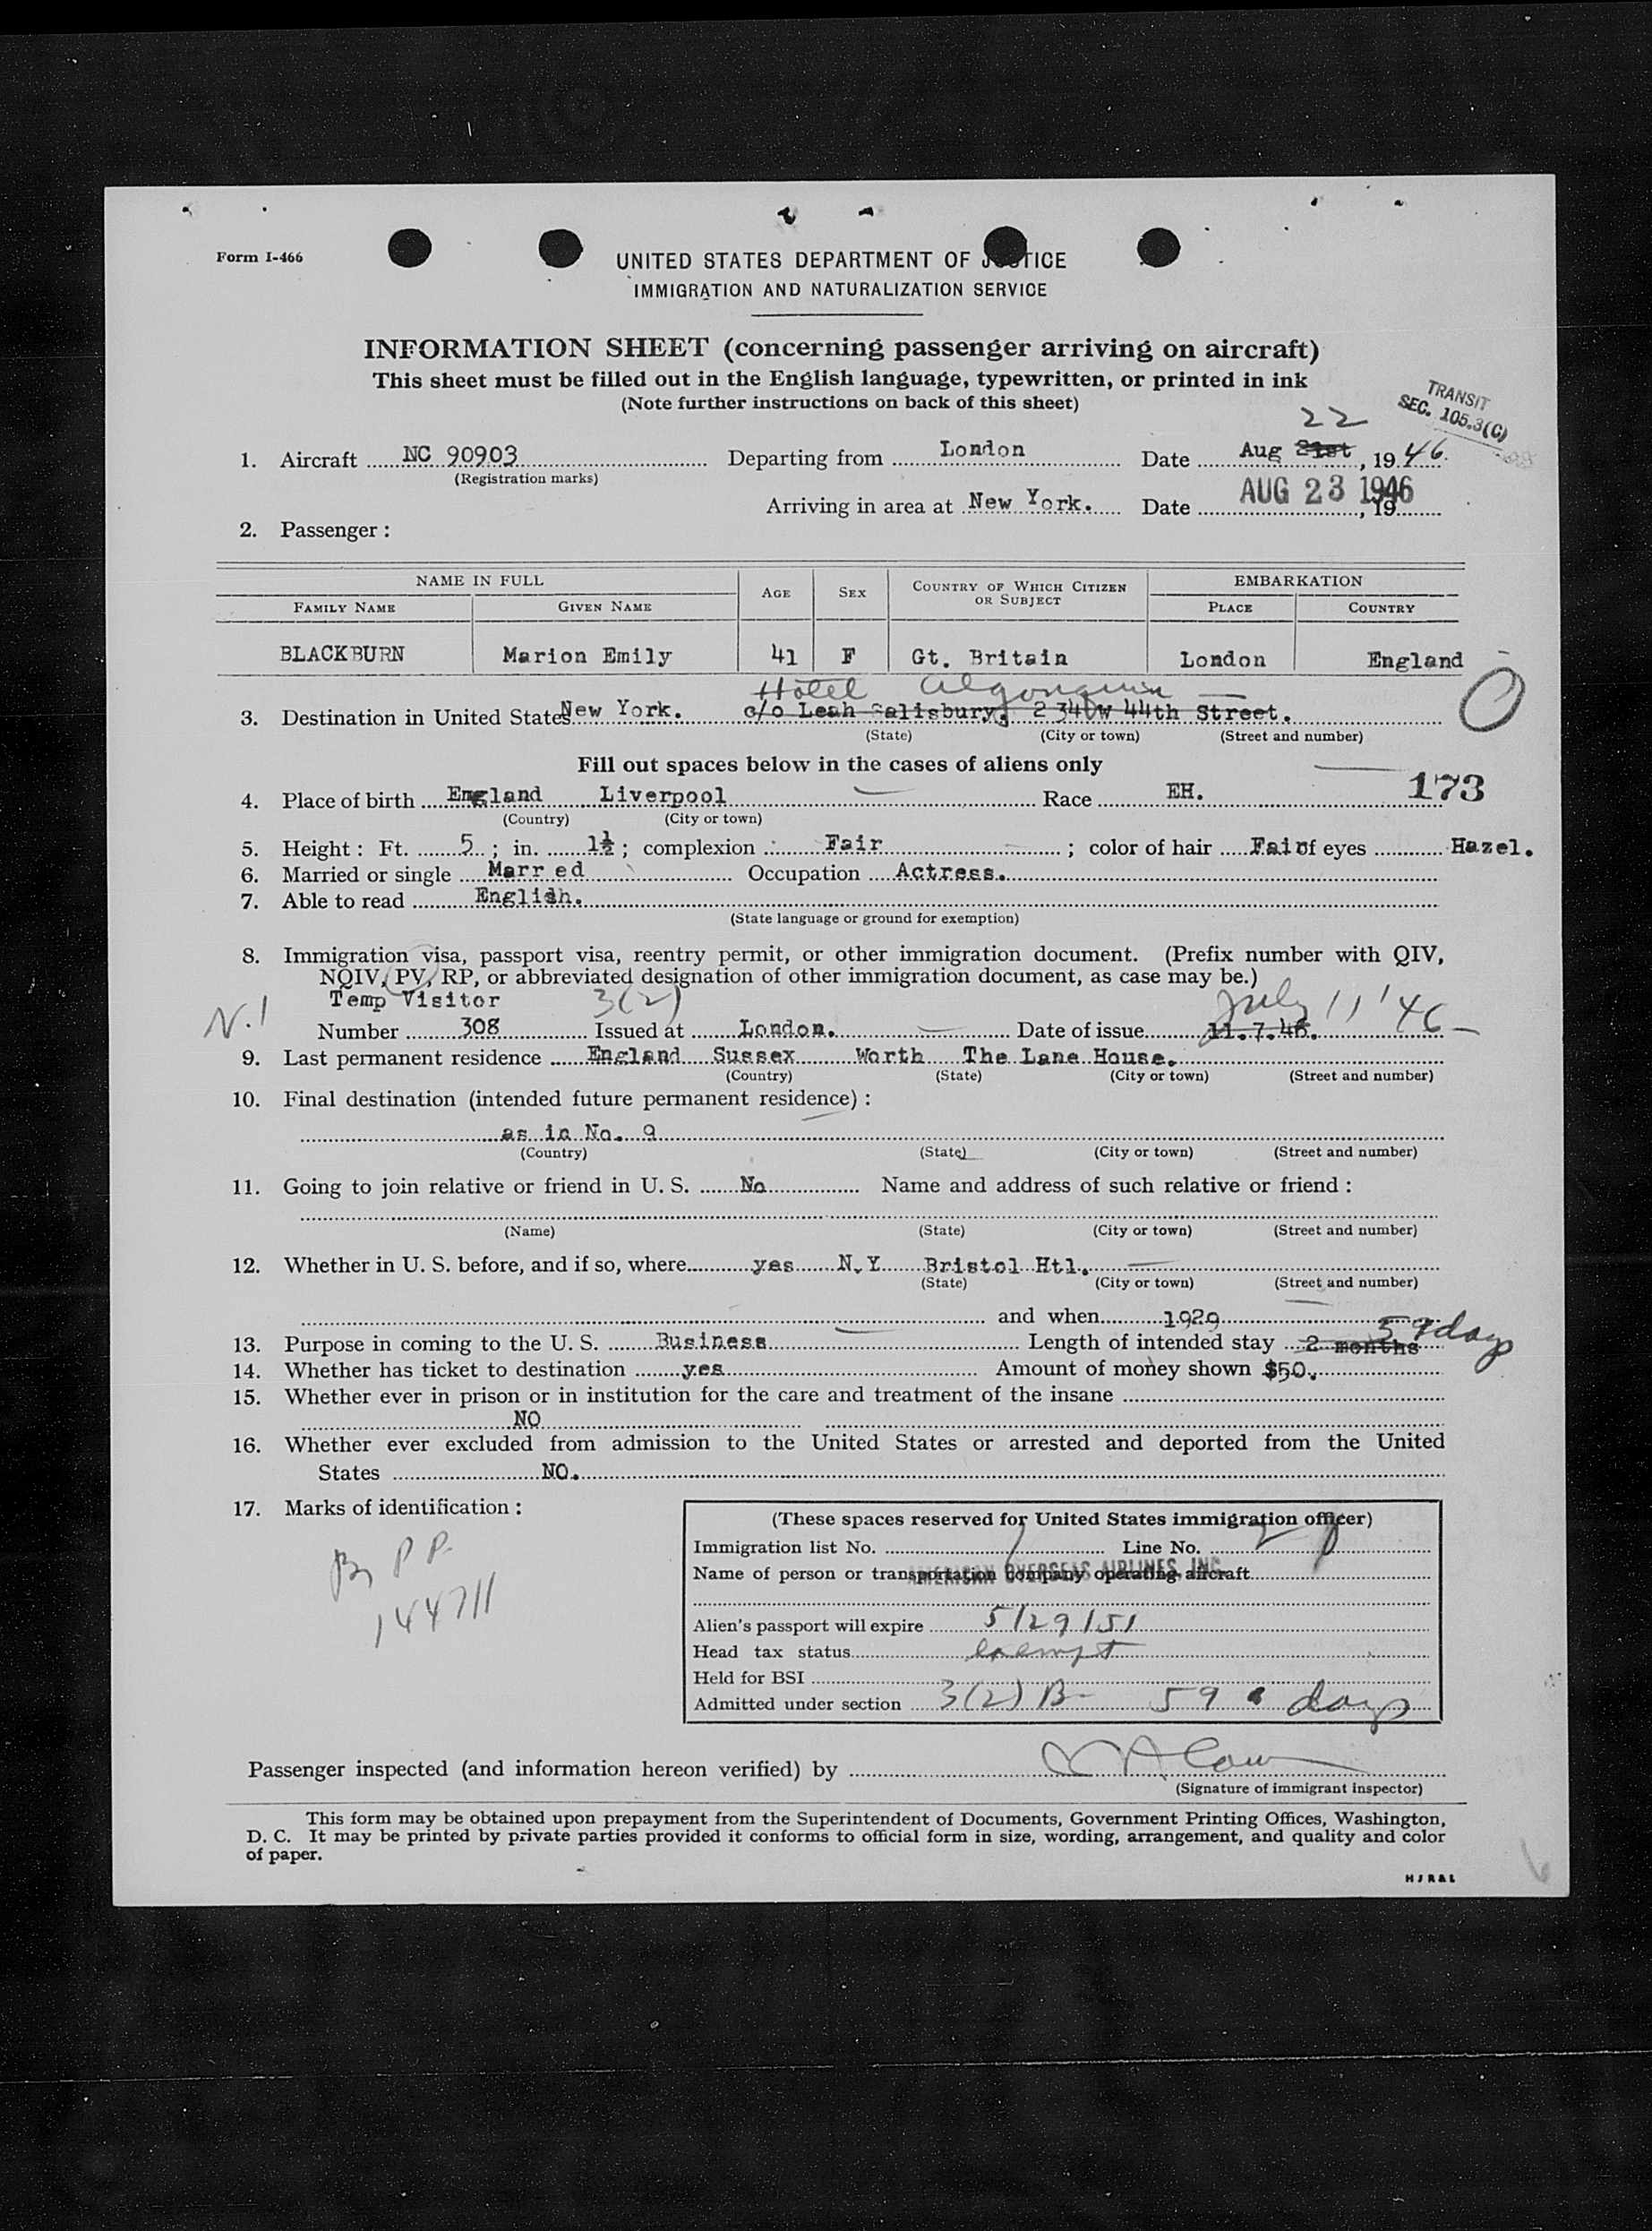 Form I-466
UNITED STATES DEPARTMENT OF JUSTICE
IMMIGRATION AND NATURALIZATION SERVICE
INFORMATION SHEET (concerning passenger arriving on aircraft)
This sheet must be filled out in the English language, typewritten, or printed in ink
(Note further instructions on back of this sheet)
TRANSIT
SEC. 105.3(C)
22
1. Aircraft NC 90903 Departing from London Date Aug 21st, 1946.
(Registration marks)
Arriving in area at New York. Date AUG 23 1946, 19
2. Passenger:
NAME IN FULL AGE SEX COUNTRY OF WHICH CITIZEN OR SUBJECT EMBARKATION
FAMILY NAME GIVEN NAME PLACE COUNTRY
BLACKBURN Marion Emily 41 F Gt. Britain London England
Hotel Algonquin
3. Destination in United States New York. c/o Leah Salisbury, 234 W 44th Street.
(State) (City or town) (Street and number)
Fill out spaces below in the cases of aliens only
173
4. Place of birth England Liverpool Race EH.
(Country) (City or town)
5. Height: Ft. 5; in. 1½; complexion Fair; color of hair Fair of eyes Hazel.
6. Married or single Marr ed Occupation Actress.
7. Able to read English.
(State language or ground for exemption)
8. Immigration visa, passport visa, reentry permit, or other immigration document. (Prefix number with QIV,
NQIV, PV, RP, or abbreviated designation of other immigration document, as case may be.)
Temp Visitor 3(2) July 11 '46
N.1 Number 308 Issued at London. Date of issue 11.7.46.
9. Last permanent residence England Sussex Worth The Lane House.
(Country) (State) (City or town) (Street and number)
10. Final destination (intended future permanent residence):
as in No. 9
(Country) (State) (City or town) (Street and number)
11. Going to join relative or friend in U. S. No Name and address of such relative or friend:
(Name) (State) (City or town) (Street and number)
12. Whether in U. S. before, and if so, where yes N.Y Bristol Htl.
(State) (City or town) (Street and number)
and when 1929
59 days
13. Purpose in coming to the U. S. Business Length of intended stay 2 months
14. Whether has ticket to destination yes Amount of money shown $50.
15. Whether ever in prison or in institution for the care and treatment of the insane
NO
16. Whether ever excluded from admission to the United States or arrested and deported from the United
States NO.
17. Marks of identification:
P.P.
144711
(These spaces reserved for United States immigration officer)
Immigration list No. Line No. 2
Name of person or transportation company operating aircraft
AMERICAN OVERSEAS AIRLINES, INC.
Alien's passport will expire 5/29/51
Head tax status exempt
Held for BSI
Admitted under section 3(2) B- 59 days
Passenger inspected (and information hereon verified) by
(Signature of immigrant inspector)
This form may be obtained upon prepayment from the Superintendent of Documents, Government Printing Offices, Washington,
D. C. It may be printed by private parties provided it conforms to official form in size, wording, arrangement, and quality and color
of paper.
HJR&L